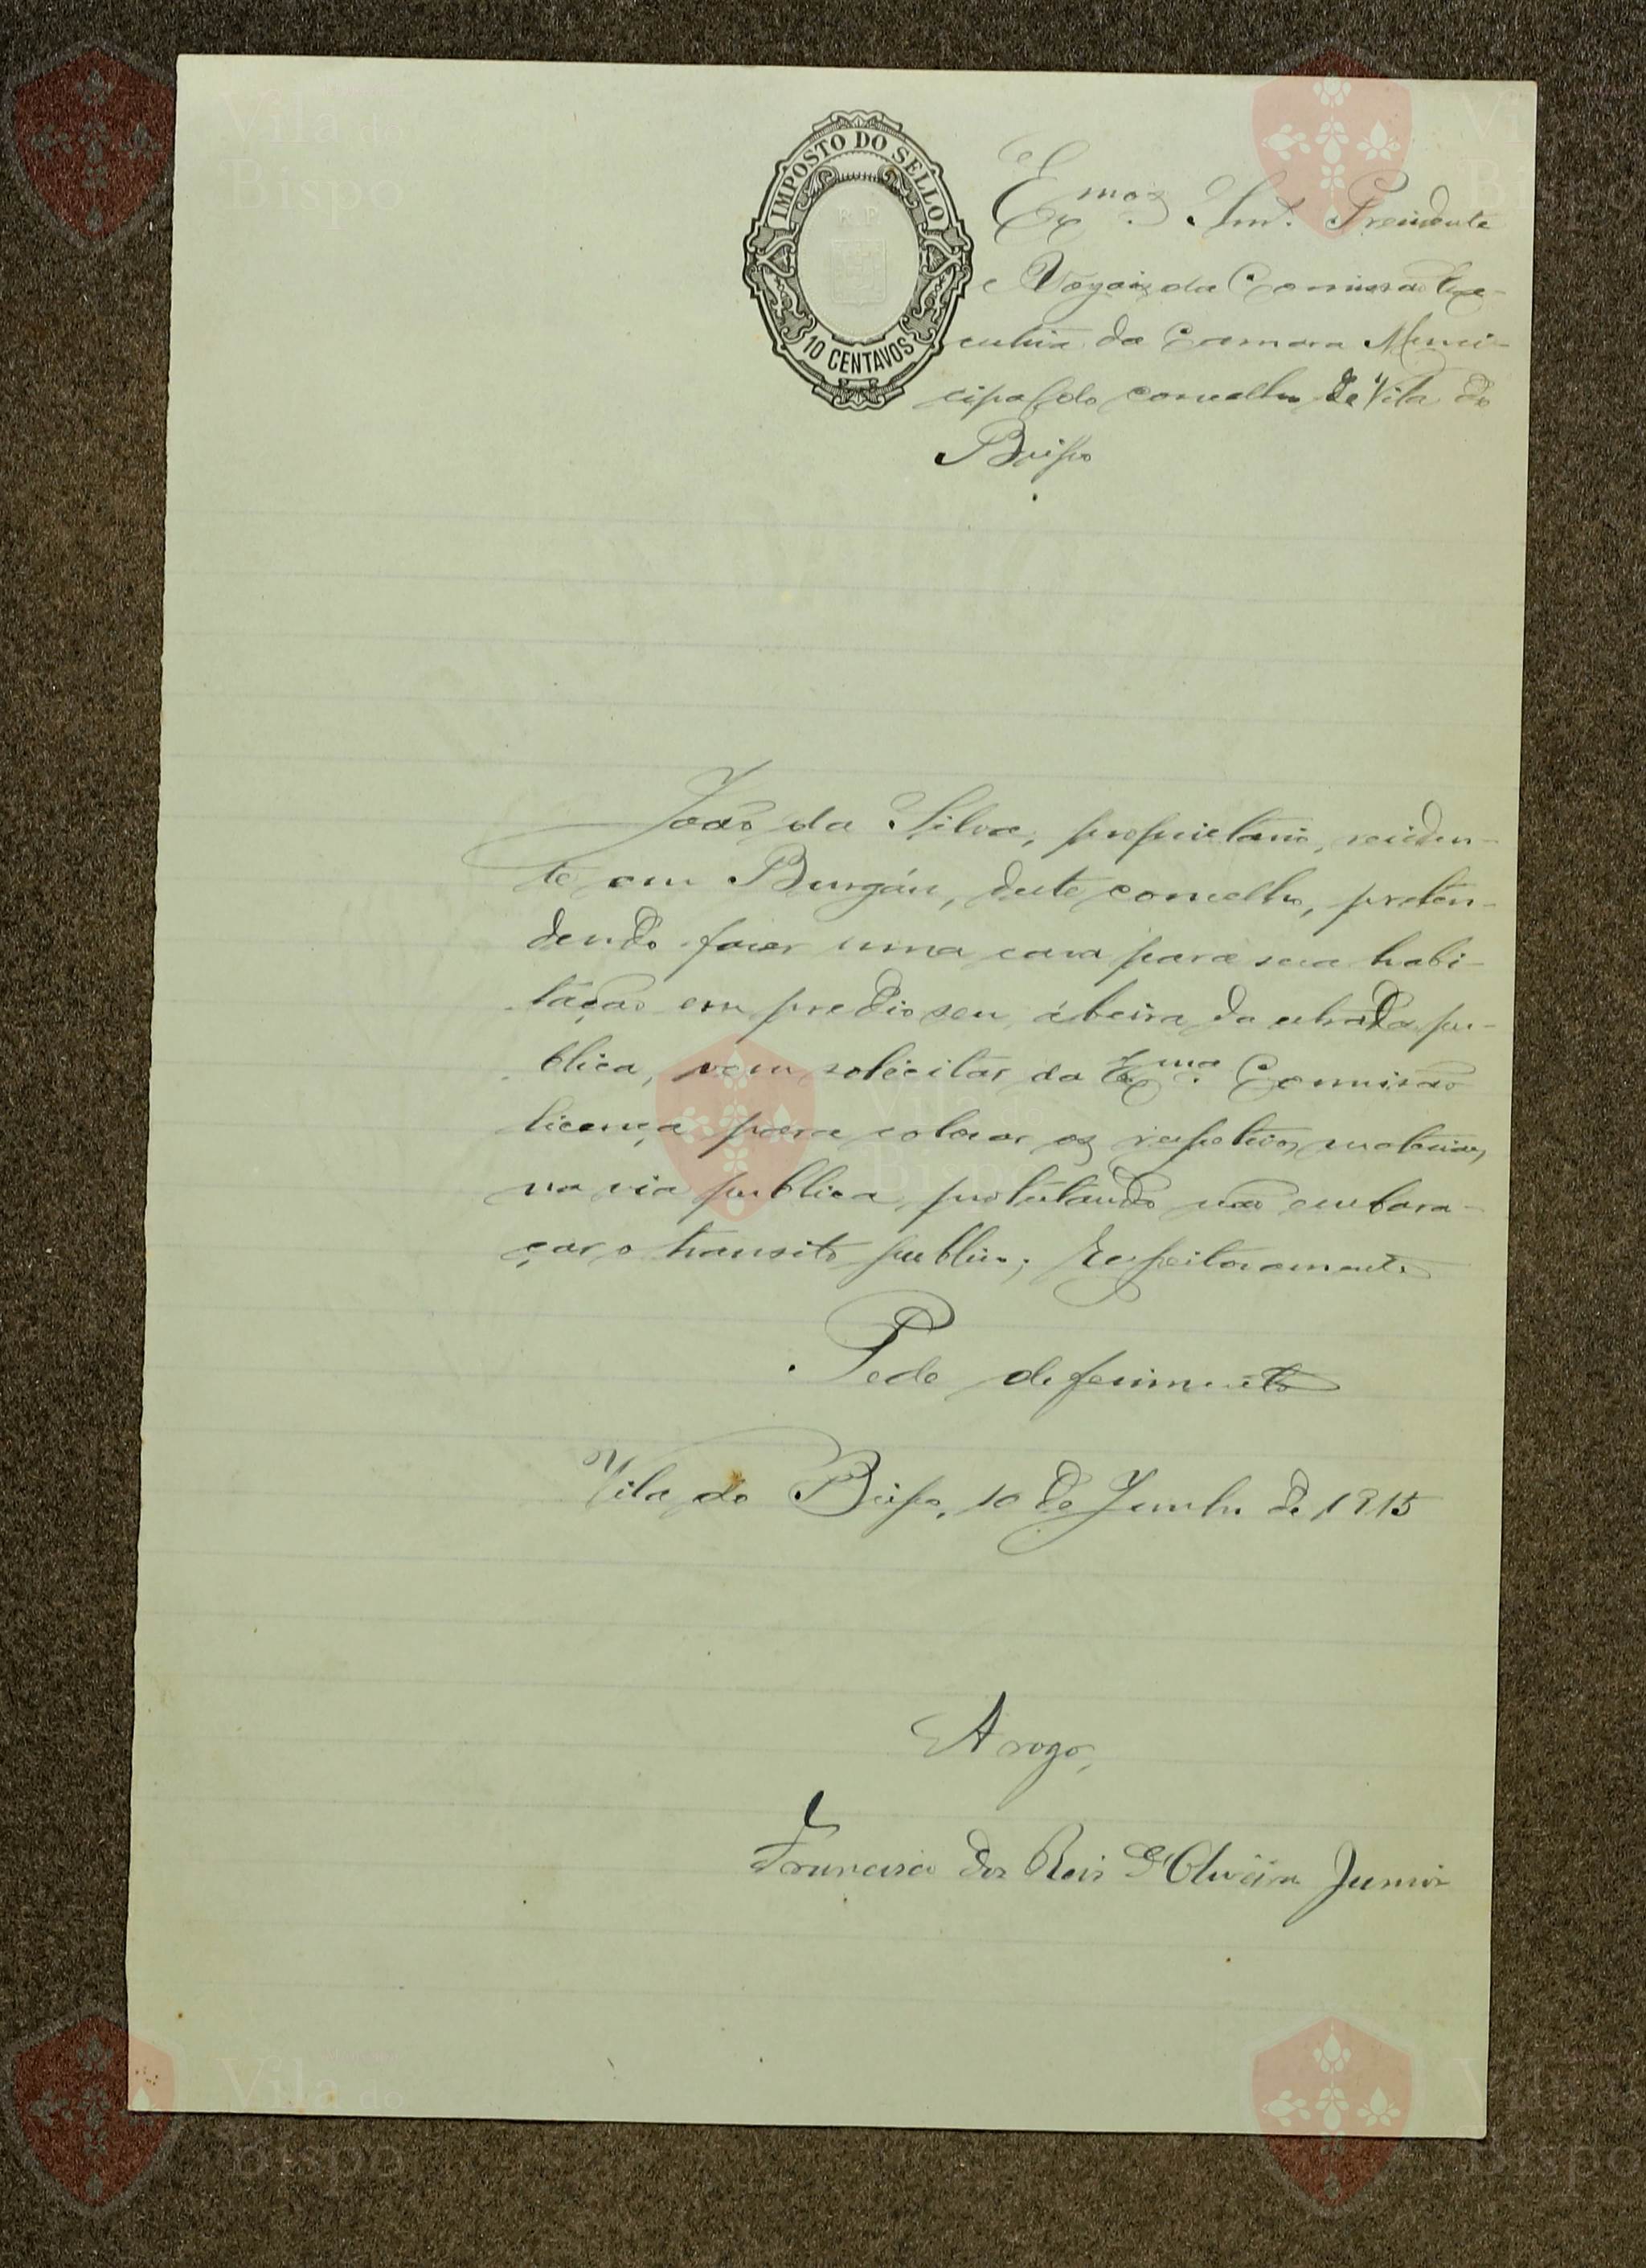 IMPOSTO DO SELLO
R P
10 CENTAVOS
Exmos. Snrs. Presidente
e Vogais da Comissão Exe-
cutiva da Camara Muni-
cipal do concelho de Vila do
Bispo
João da Silva, proprietario, residen-
te em Burgáu, deste concelho, preten-
dendo fazer uma casa para sua habi-
tação em predio seu á beira da estrada pu-
blica, vem solicitar da Exma. Comissão
licença para colocar os respetivos materiais
na via publica, protestando não embara-
çar o transito publico; Respeitosamente
Pede deferimento
Vila do Bispo, 10 de Junho de 1915
A rogo,
Francisco dos Reis d'Oliveira Junior
Vila do
Bispo
Vila do
Bispo
Vila do
Bispo